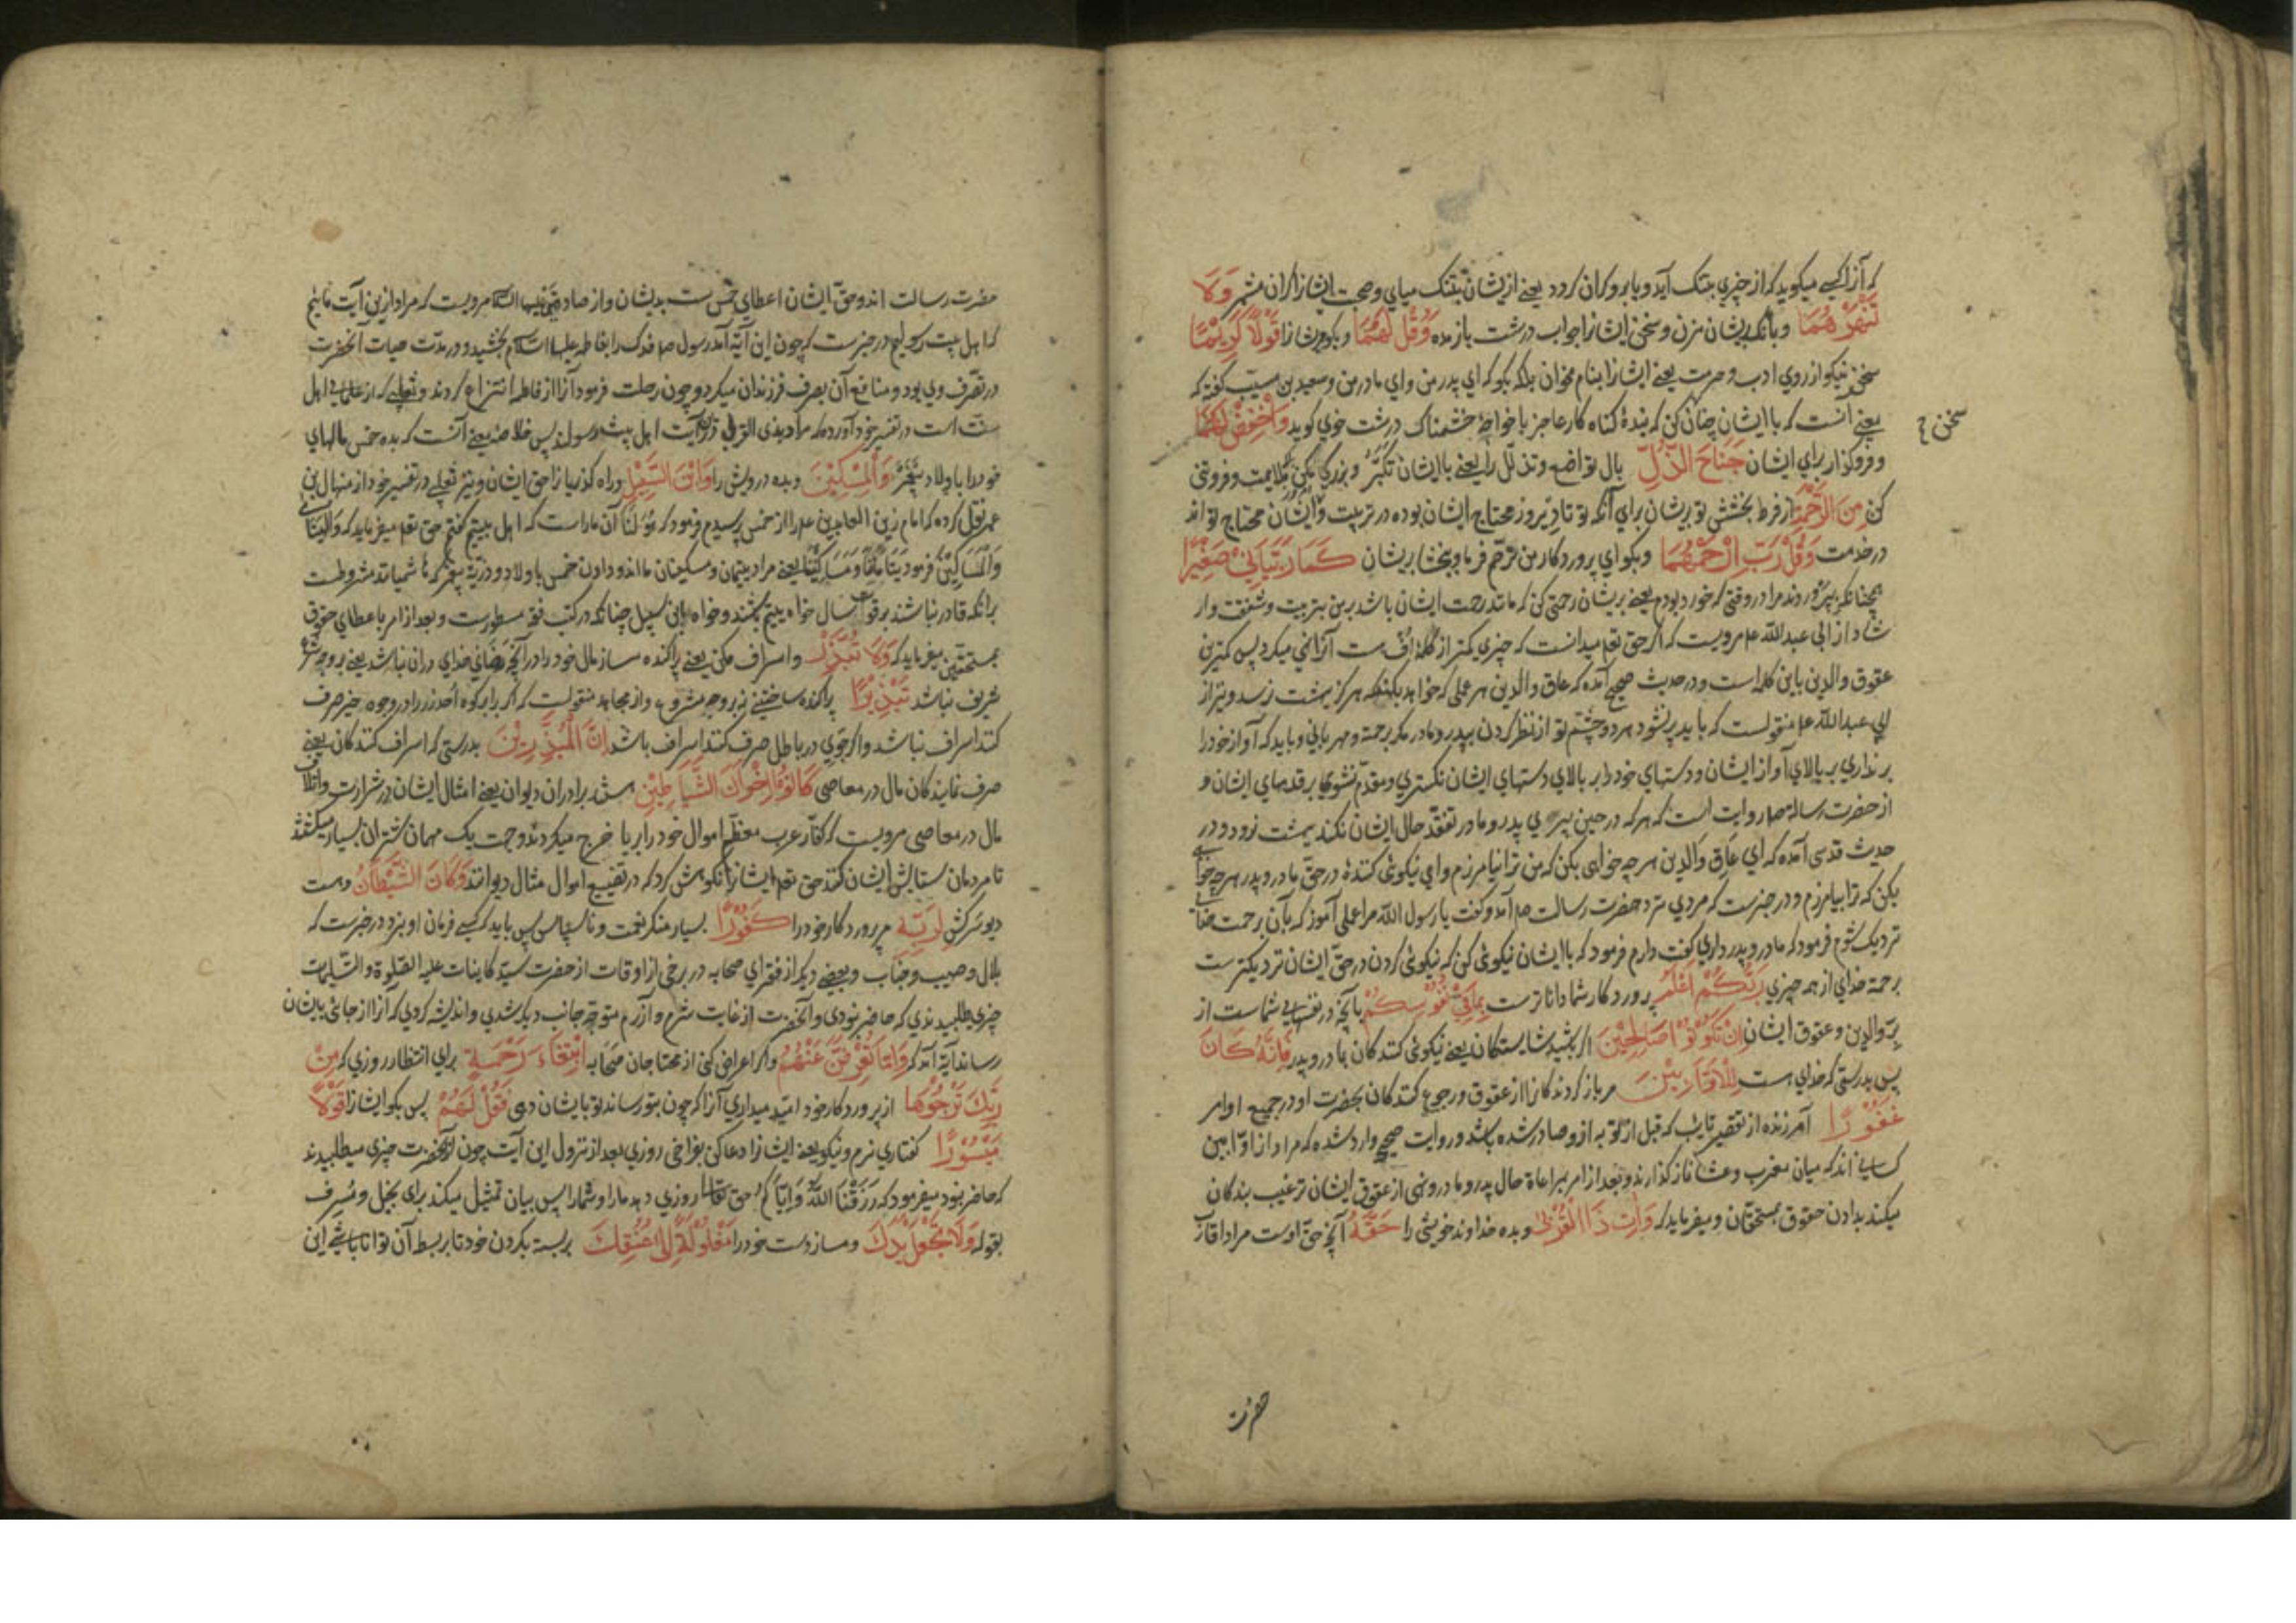 که آنرا کسی میکوید که از چیزی بتنک آید و یا برو کران کردد یعنے از یشان بتنک میای وصحبت ایشانرا کران مشمر وَلَا
تَنْهَرْهُمَا و بانک بایشان مزن و سخن ایشانرا جواب درشت باز مده وَقُلْ لَهُمَا و بکو مریشانرا قَوْلًا كَرِيْمًا
سخنی نیکو از روی ادب و حرمت یعنے ایشانرا بنام مخوان بلکه بکو که ای پدر من و ای مادر من و سعید بن مسیّب کفته که
یعنے آنست که باایشان چنان کن که بندهٔ کناه کار عاجز با خواجهٔ خشمناک درشت خوی کوید وَاخْفِضْ لَهُمَا
سخن
و فروکذار برای ایشان جَنَاحَ الذُّلِّ بال تواضع و تذلّل را یعنے باایشان تکبّر و بزرکی مکن بملایمت و فروتنی
کن مِنَ الرَّحْمَةِ از فرط بخشش تو بریشان برای آنکه تو تا دیروز محتاج ایشان بوده در تربیت و ایشان محتاج تو اند
در خدمت وَقُلْ رَبِّ ارْحَمْهُمَا و بکو ای پروردکار من ترحّم فرما و ببخشا بریشان كَمَا رَبَّيَانِيْ صَغِيْرًا
همچنانکه پپروردند مرا در وقتی که خورد بودم یعنے بریشان رحمتی کن که مانند رحمت ایشان باشد بر من بتربیت و شفقت و ار
شاد از ابی عبدالله ع مرویست که اکر حق تعه میدانست که چیزی کمتر از کلمه اف هست آنرا نهی میکرد پس کمترین
عقوق والدین باین کلمه است و در حدیث صحیح آمده که عاق والدین هر عملی که خواهد بکند که هرکز ببهشت نرسد و نیز از
ابی عبدالله ع منقولست که باید پر نشود هر دو چشم تو از نظر کردن بپدر و مادر مکر برحمة و مهربانی و باید که آواز خود را
بر نداری ببالای آواز ایشان و دستهای خود را بر بالای دستهای ایشان نکستری و مقدّم نشوی بر قدمهای ایشان و
از حضرت رسالة ص روایت است که هر که در حین پیری پدر و مادر تفقّد حال ایشان نکند ببهشت نرود و در
حدیث قدسی آمده که ای عاق والدین هر چه خواهی بکن که من ترا نیامرزم و ای نیکوئی کنندهٔ در حق مادر و پدر هر چه خواهی
بکن که ترا بیامرزم و در خبرست که مردی نزد حضرت رسالت ص آمد و کفت یا رسول الله مرا عملی آموز که بآن برحمت خدا
نزدیک شوم فرمود که مادر و پدر داری کفت دارم فرمود که باایشان نیکوئی کن که نیکوئی کردن در حق ایشان نزدیکترست
برحمة خدای از همه چیزی رَبُّكُمْ اَعْلَمُ پروردکار شما داناترست بِمَا فِيْ نُفُوْسِكُمْ بآنچه در نفسهای شماست از
برّ والدین و عقوق ایشان اِنْ تَكُوْنُوْا صَالِحِيْنَ اکر باشید شایستکان یعنے نیکوئی کنندکان بمادر و پدر فَاِنَّهُ كَانَ
پس بدرستی که خدای هست لِلْاَوَّابِيْنَ مر باز کردندکانرا از عقوق و رجوع کنندکان بحضرت او در جمیع اوامر
غَفُوْرًا آمرزنده از تقصیر تایب که قبل از توبه ازو صادر شده باشد و روایت صحیح وارد شده که مراد از اوّابین
کسانی اند که میان مغرب و عشا نماز کذارند و بعد از امر بمراعاة حال پدر و مادر و نهی از عقوق ایشان ترغیب بندکان
میکند بدادن حقوق بمستحقان و میفرماید که وَاٰتِ ذَا الْقُرْبٰى و بده خداوند خویشی را حَقَّهُ آنچه حق اوست مراد اقارب
حضرت
حضرت رسالت اند و حق ایشان اعطای خمس ست بدیشان و از صادقین علیهما السّلام مرویست که مراد ازین آیت مائیم
که اهل بیت رسولیم در خبرست که چون این آیة آمد رسول ص فدک را بفاطمه علیها السّلام بخشید و در مدّت حیات آنحضرت
در تصرّف وی بود و منافع آن بصرف فرزندان میکرد و چون رحلت فرمود آنرا از فاطمه انتزاع کردند و ثعلبی که از علمای اهل
سنّت است در تفسیر خود آورده که مراد بذی القربی درین آیت اهل بیت رسولند پس خلاصه یعنے آنست که بده خمس مالهای
خود را باولاد پیغمبر وَالْمِسْكِيْنَ و بده درویش را وَابْنَ السَّبِيْلِ و راه کذریانرا حق ایشان و نیز ثعلبی در تفسیر خود از منهال بن
عمر نقل کرده که امام زین العابدین ع را از خمس پرسیدم فرمود که هُوَ لَنَا آن ماراست که اهل بیتیم کفتم حق تعه میفرماید که وَالْیَتَامٰی
وَالْمَسَاكِيْنَ فرمود یَتَامَانَا وَمَسَاكِيْنَنَا یعنے مراد یتیمان و مسکینان مااند و دادن خمس باولاد و ذریّة پیغمبر که هاشمیانند مشروطست
برآنکه قادر نباشند بر قوت سال خواه یتیم باشند و خواه ابن سبیل چنانکه در کتب فقه مسطورست و بعد از امر باعطای حقوق
بمستحقّین میفرماید که وَلَا تُبَذِّرْ و اسراف مکن یعنے پراکنده مساز مال خود را در آنچه رضای خدای در ان نباشد یعنے بر وجه شرع
شریف نباشد تَبْذِيْرًا پراکنده ساختنی نه بر وجه مشروع و از مجاهد منقولست که اکر برابر کوه احد زر را در وجوه خیر صرف
کنند اسراف نباشد و اکر جوی در باطل صرف کنند اسراف باشد اِنَّ الْمُبَذِّرِيْنَ بدرستی که اسراف کنندکان یعنے
صرف نمایندکان مال در معاصی كَانُوْا اِخْوَانَ الشَّيَاطِيْنِ هستند برادران دیوان یعنے امثال ایشان در شرارت و اتلاف
مال در معاصی مرویست که کفّار عرب معظم اموال خود را بریا خرج میکردند و جهت یک مهمان شتران بسیار میکشتند
تا مردمان ستایش ایشان کنند حق تعه ایشانرا نکوهش کرد که در تضییع اموال مثال دیوانند وَكَانَ الشَّيْطَانُ و هست
دیو سرکش لِرَبِّهِ مر پروردکار خود را كَفُوْرًا بسیار منکر نعمت و ناسپاس پس باید که کسی فرمان او نبرد در خبرست که
بلال و صهیب و خبّاب و بعضے دیکر از فقرای صحابه در برخی از اوقات از حضرت سیّد کاینات علیه الصّلوة والتّسلیمات
چیزی طلبیدندی که حاضر نبودی و آنحضرت از غایت شرم و آزرم متوجّه جانب دیکر شدی و اندیشه کردی که آنرا از جائی بایشان
رساند آیة آمد که وَاِمَّا تُعْرِضَنَّ عَنْهُمُ و اکر اعراض کنی از محتاجان صحابه ابْتِغَاءَ رَحْمَةٍ برای انتظار روزی که مِنْ
رَبِّكَ تَرْجُوْهَا از پروردکار خود امّید میداری آنرا که چون بتو رساند تو بایشان دهی فَقُلْ لَهُمْ پس بکو ایشانرا قَوْلًا
مَيْسُوْرًا کفتاری نرم و نیکو یعنے ایشانرا دعا کن بفراخی روزی بعد از نزول این آیت چون از آنحضرت چیزی میطلبیدند
که حاضر نبود میفرمود که رَزَقْنَا اللّٰهُ وَاِیَّاکُمْ حق تعالی روزی دهد مارا و شمارا پس بیان تمثیل میکند برای بخیل و مُسرف
بقوله وَلَا تَجْعَلْ يَدَكَ و مساز دست خود را مَغْلُوْلَةً اِلٰى عُنُقِكَ بر بسته بکردن خود تا بر بسط آن توانا باشی این